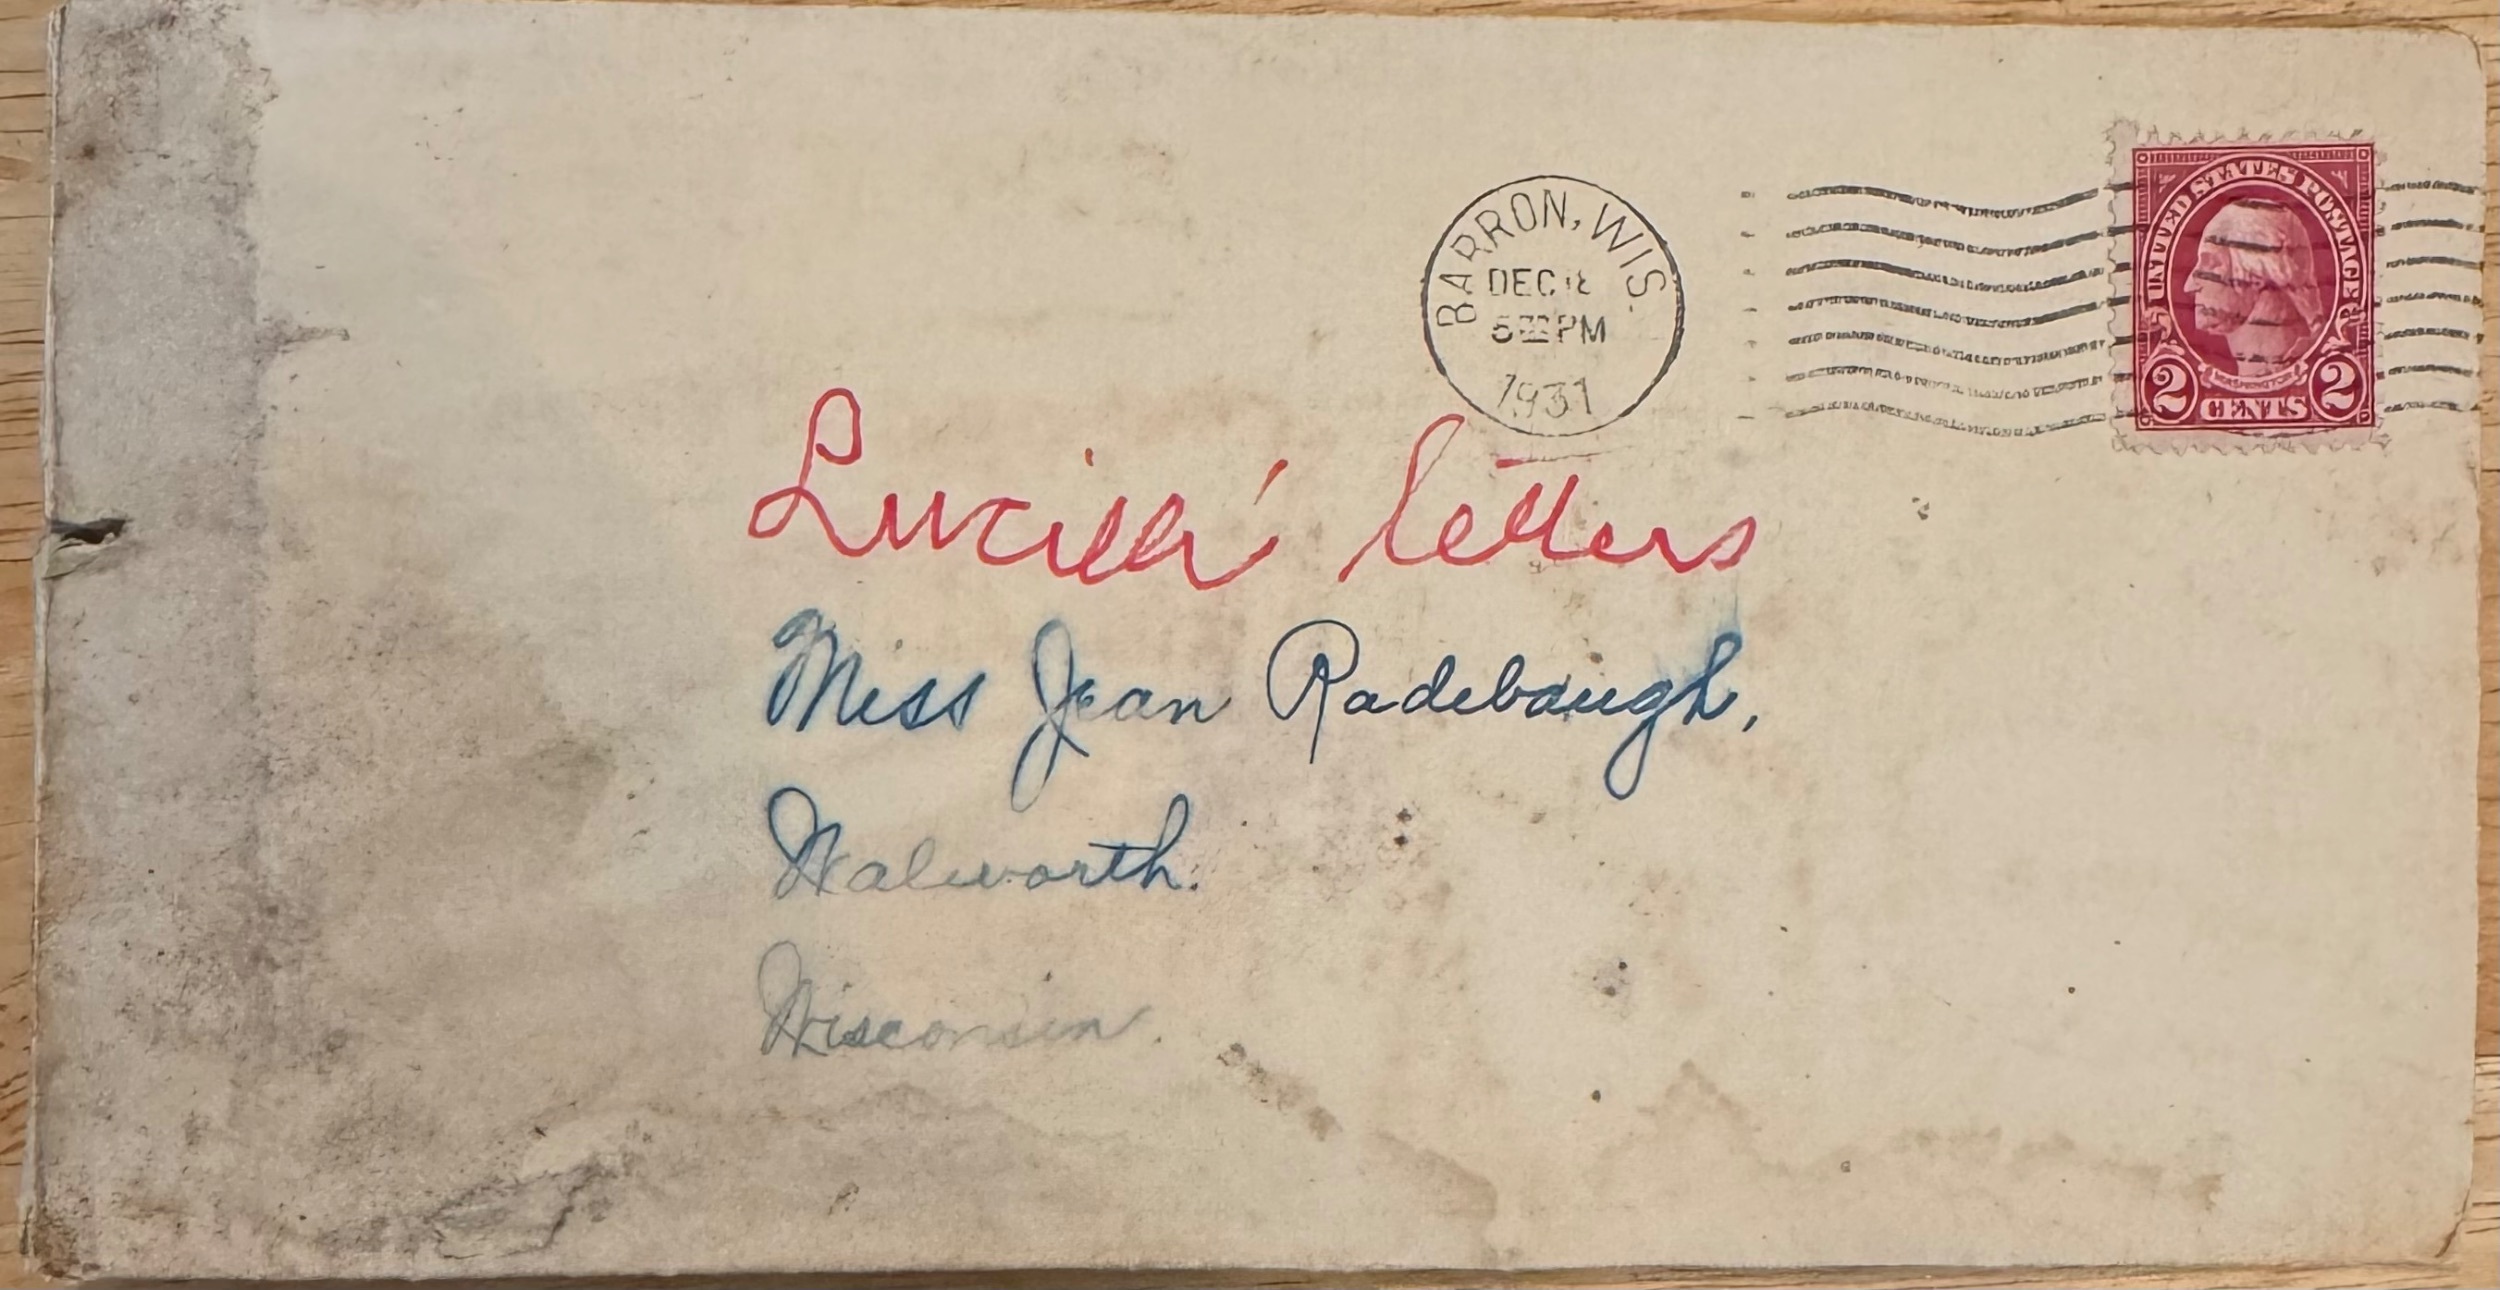 BARRON, WIS.
DEC 18
5 PM
1931
UNITED STATES POSTAGE
WASHINGTON
2 CENTS 2
Lucille' letters
Miss Jean Radebaugh,
Walworth.
Wisconsin.